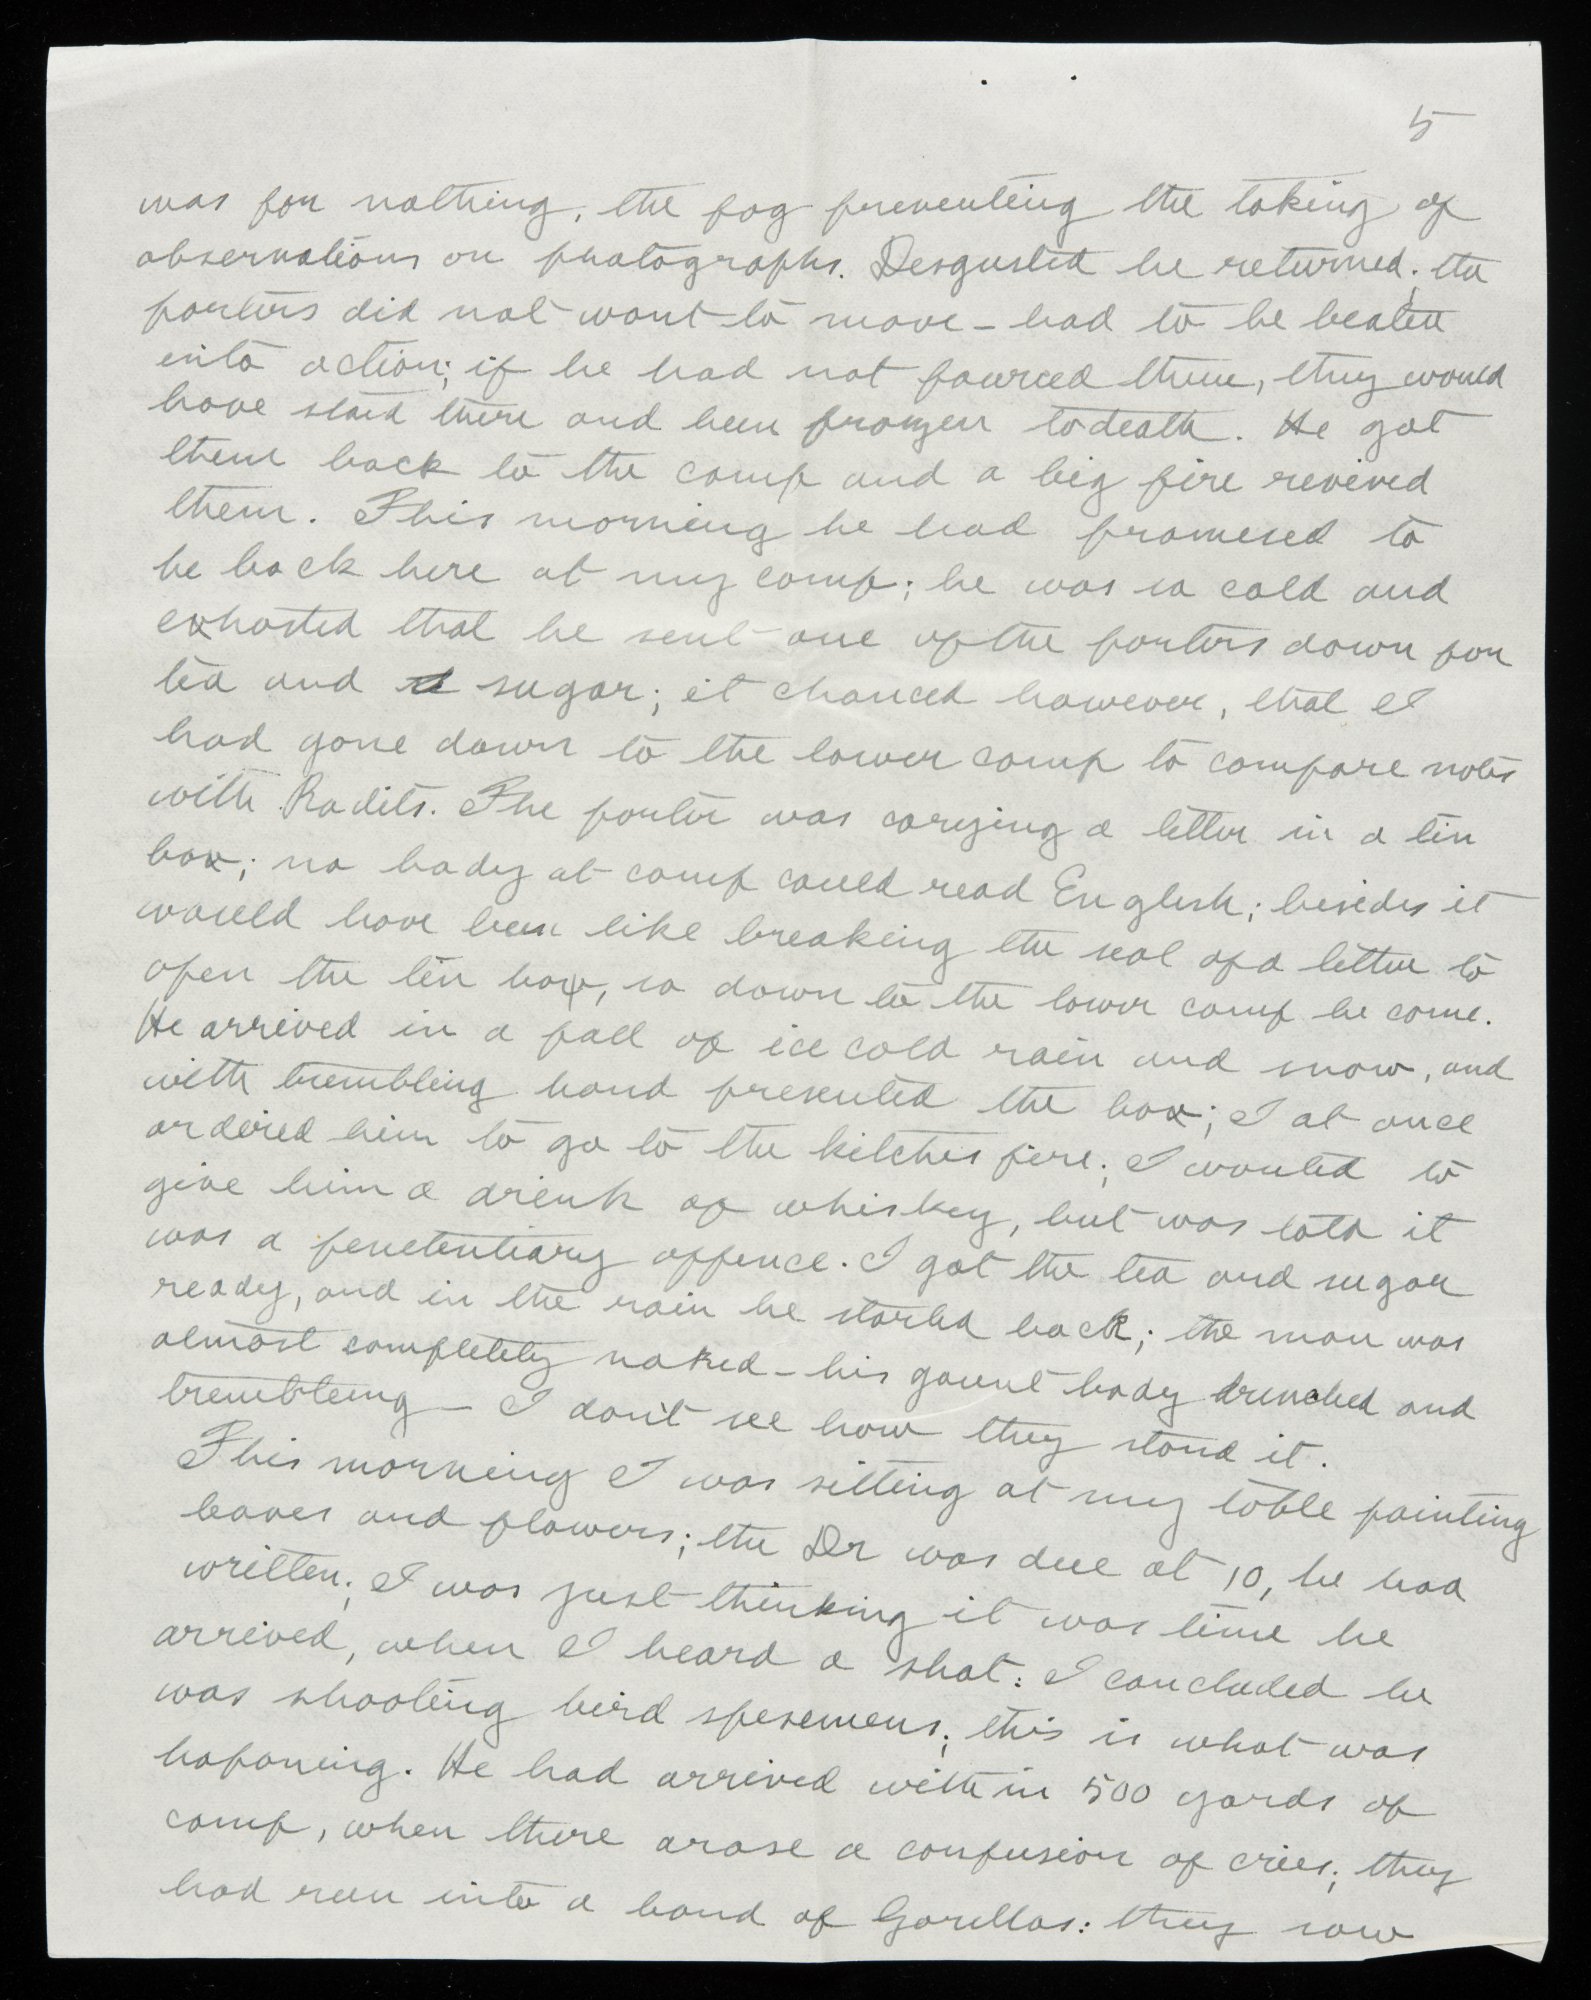 5
was for nothing, the fog preventing the taking of
observations or photographs. Desgusted he returned; the
porters did not want to move – had to be beaten
into action; if he had not fource them, they would
have staid there and been frozen to death. He got
them back to the camp and a big fire revived
them. This morning he had promised to
be back here at my camp; he was so cold and
exhosted that he sent one of the porters down for
tea and sugar; it chanced however, that I
had gone down to the lower camp to compare notes
with Radits. The porter was carying a letter in a tin
box; no body at camp could read English; besides it
would have been like breaking the seal of a letter to
open the tin box, so down to the lower camp he come.
He arrived in a fall of ice cold rain and snow, and
with trembling hand presented the box; I at once
ordered him to go to the kitchen fire; I wanted to
give him a drink of whiskey, but was told it
was a penetentiary offence. I got the tea and sugar
ready, and in the rain he started back; the man was
almost completely naked – his gaunt body drenched and
trembleing – I don't see how they stand it.
This morning I was sitting at my table painting
leaves and flowers; the Dr was due at 10, he had
written; I was just thinking it was time he
arrived, when I heard a shot: I concluded he
was shooting bird spesemens; this is what was
hapaning. He had arrived within 500 yards of
camp, when there arose a confusion of cries; they
had run into a band of Gorillas: they saw